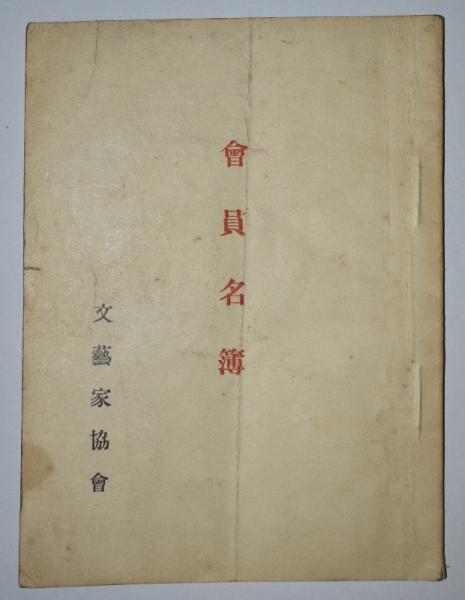 會員名簿
文藝家協會